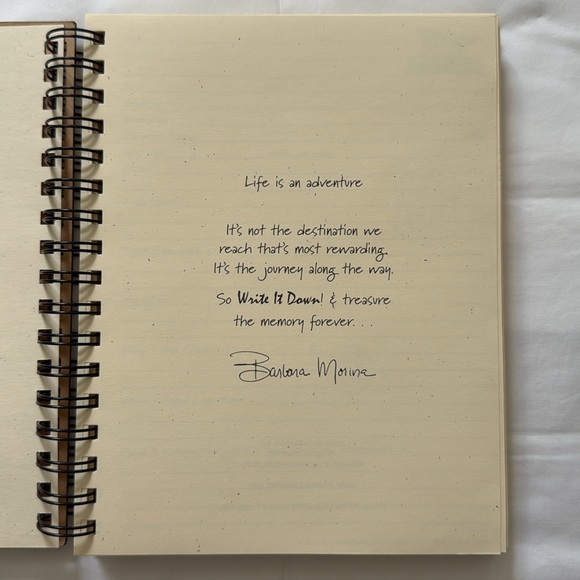 Life is an adventure
It's not the destination we
reach that's most rewarding.
It's the journey along the way.
So Write It Down! & treasure
the memory forever. . .
Barbara Morina